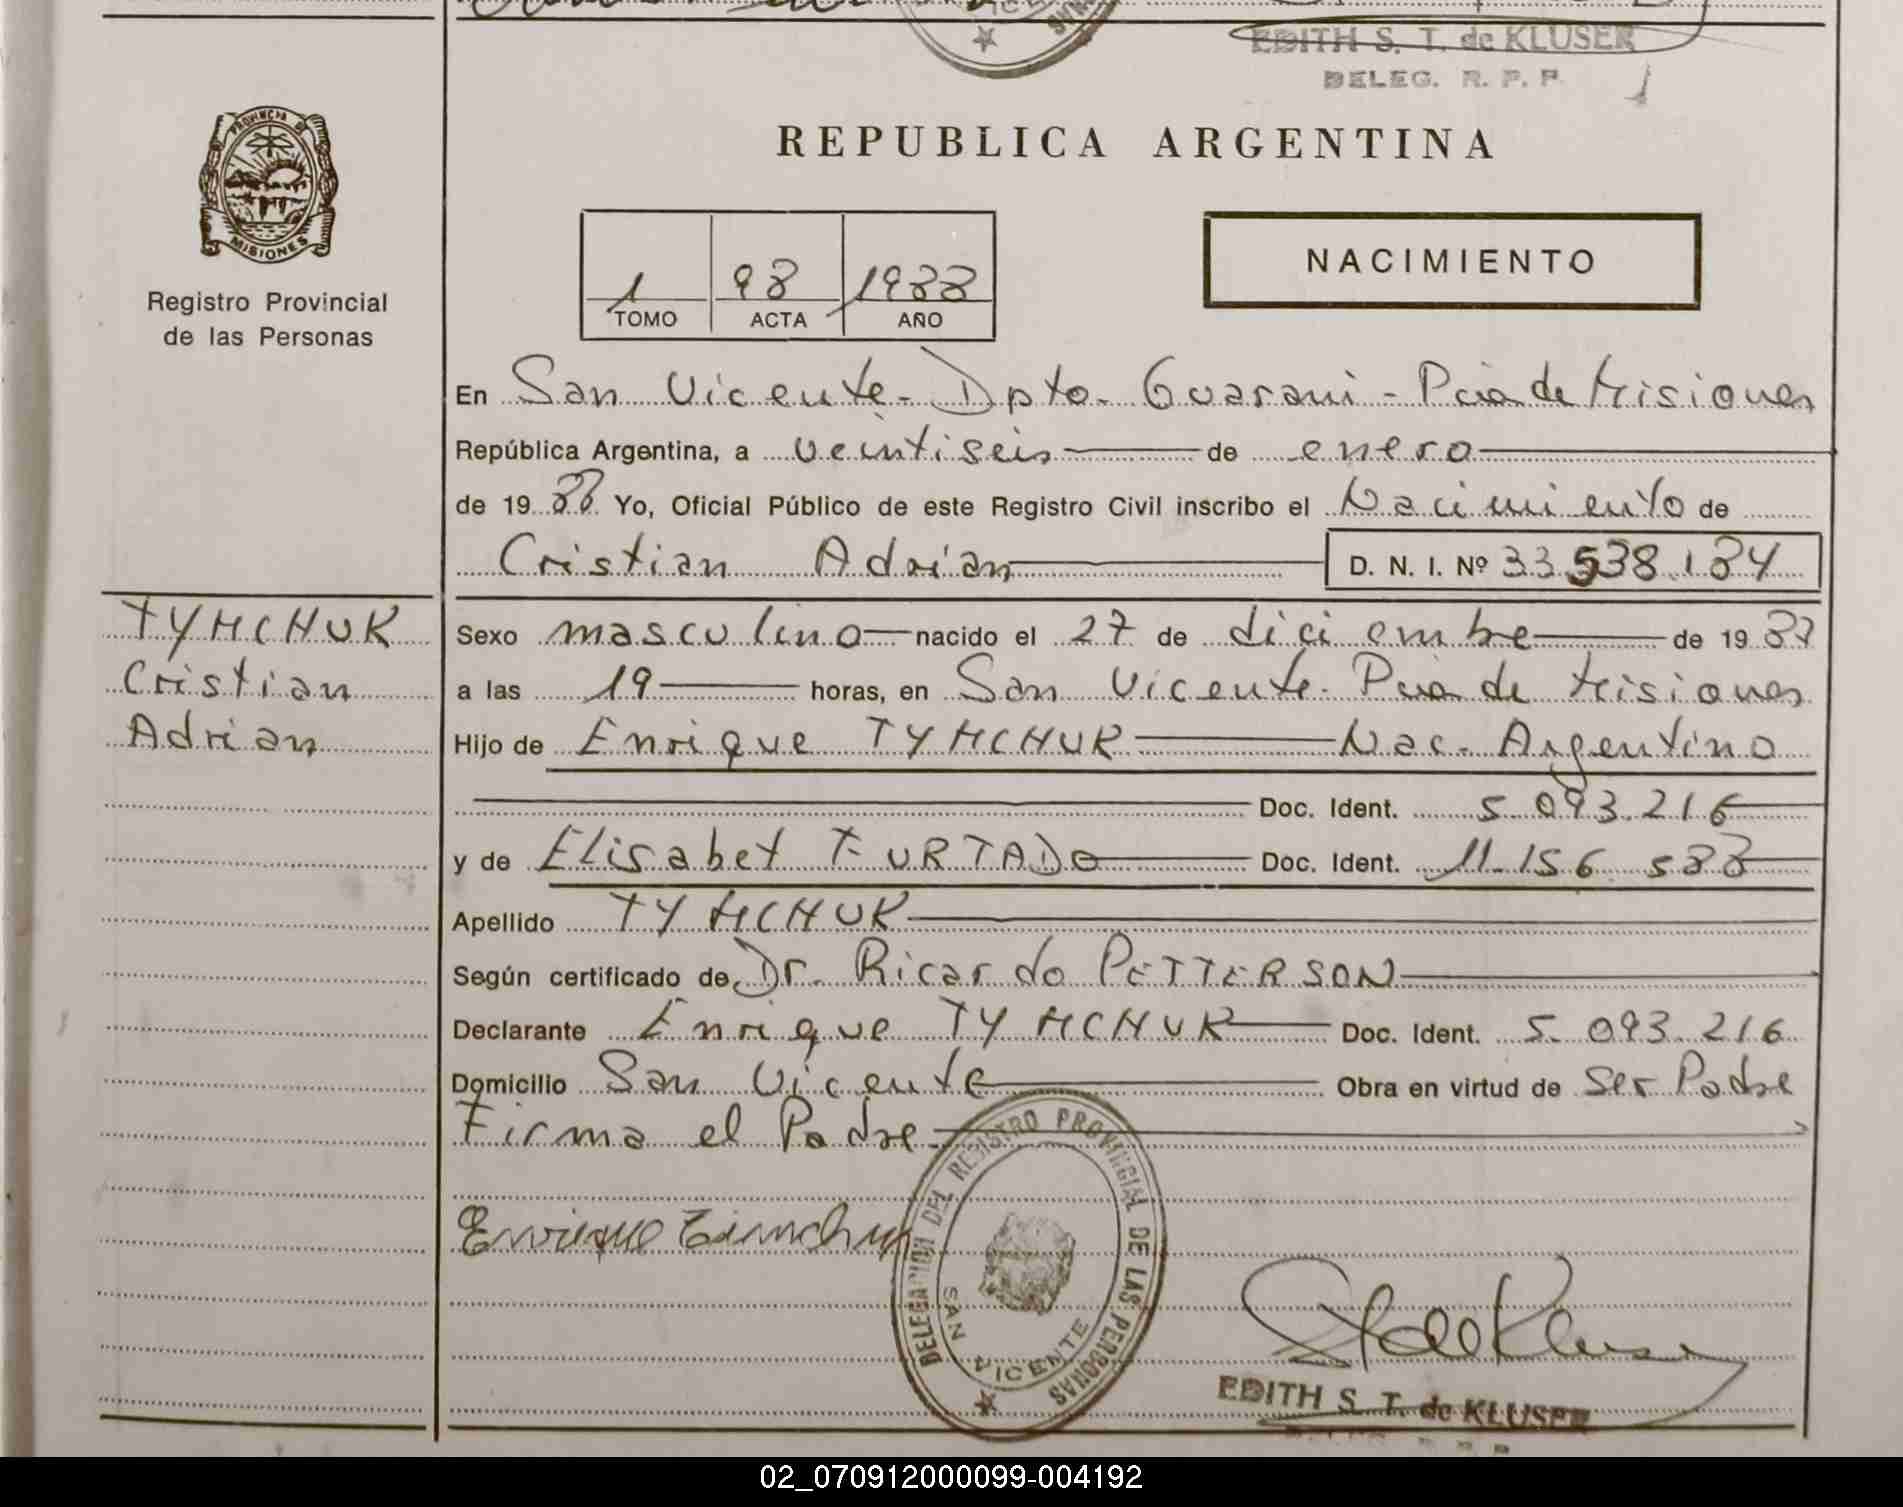 EDITH S. T. de KLUSER
DELEG. R. P. P.
PROVINCIA DE
MISIONES
Registro Provincial
de las Personas
REPUBLICA ARGENTINA
1 98 1988
TOMO ACTA AÑO
NACIMIENTO
En San Vicente - Dpto. Guarani - Pcia de Misiones
República Argentina, a veintiseis de enero
de 19 88 Yo, Oficial Público de este Registro Civil inscribo el Nacimiento de
Cristian Adrian D. N. I. Nº 33.538.184
TYMCHUK
Cristian
Adrian
Sexo masculino nacido el 27 de diciembre de 19 87
a las 19 horas, en San Vicente - Pcia de Misiones
Hijo de Enrique TYMCHUK Nac. Argentino
Doc. Ident. 5.093.216
y de Elisabet FURTADO Doc. Ident. 11.156.588
Apellido TYMCHUK
Según certificado de Dr. Ricardo PETTERSON
Declarante Enrique TYMCHUK Doc. Ident. 5.093.216
Domicilio San Vicente Obra en virtud de Ser Padre
Firma el Padre
Enrique
DELEGACION DEL REGISTRO PROVINCIAL DE LAS PERSONAS
SAN VICENTE
EDITH S. T. de KLUSER
02_070912000099-004192